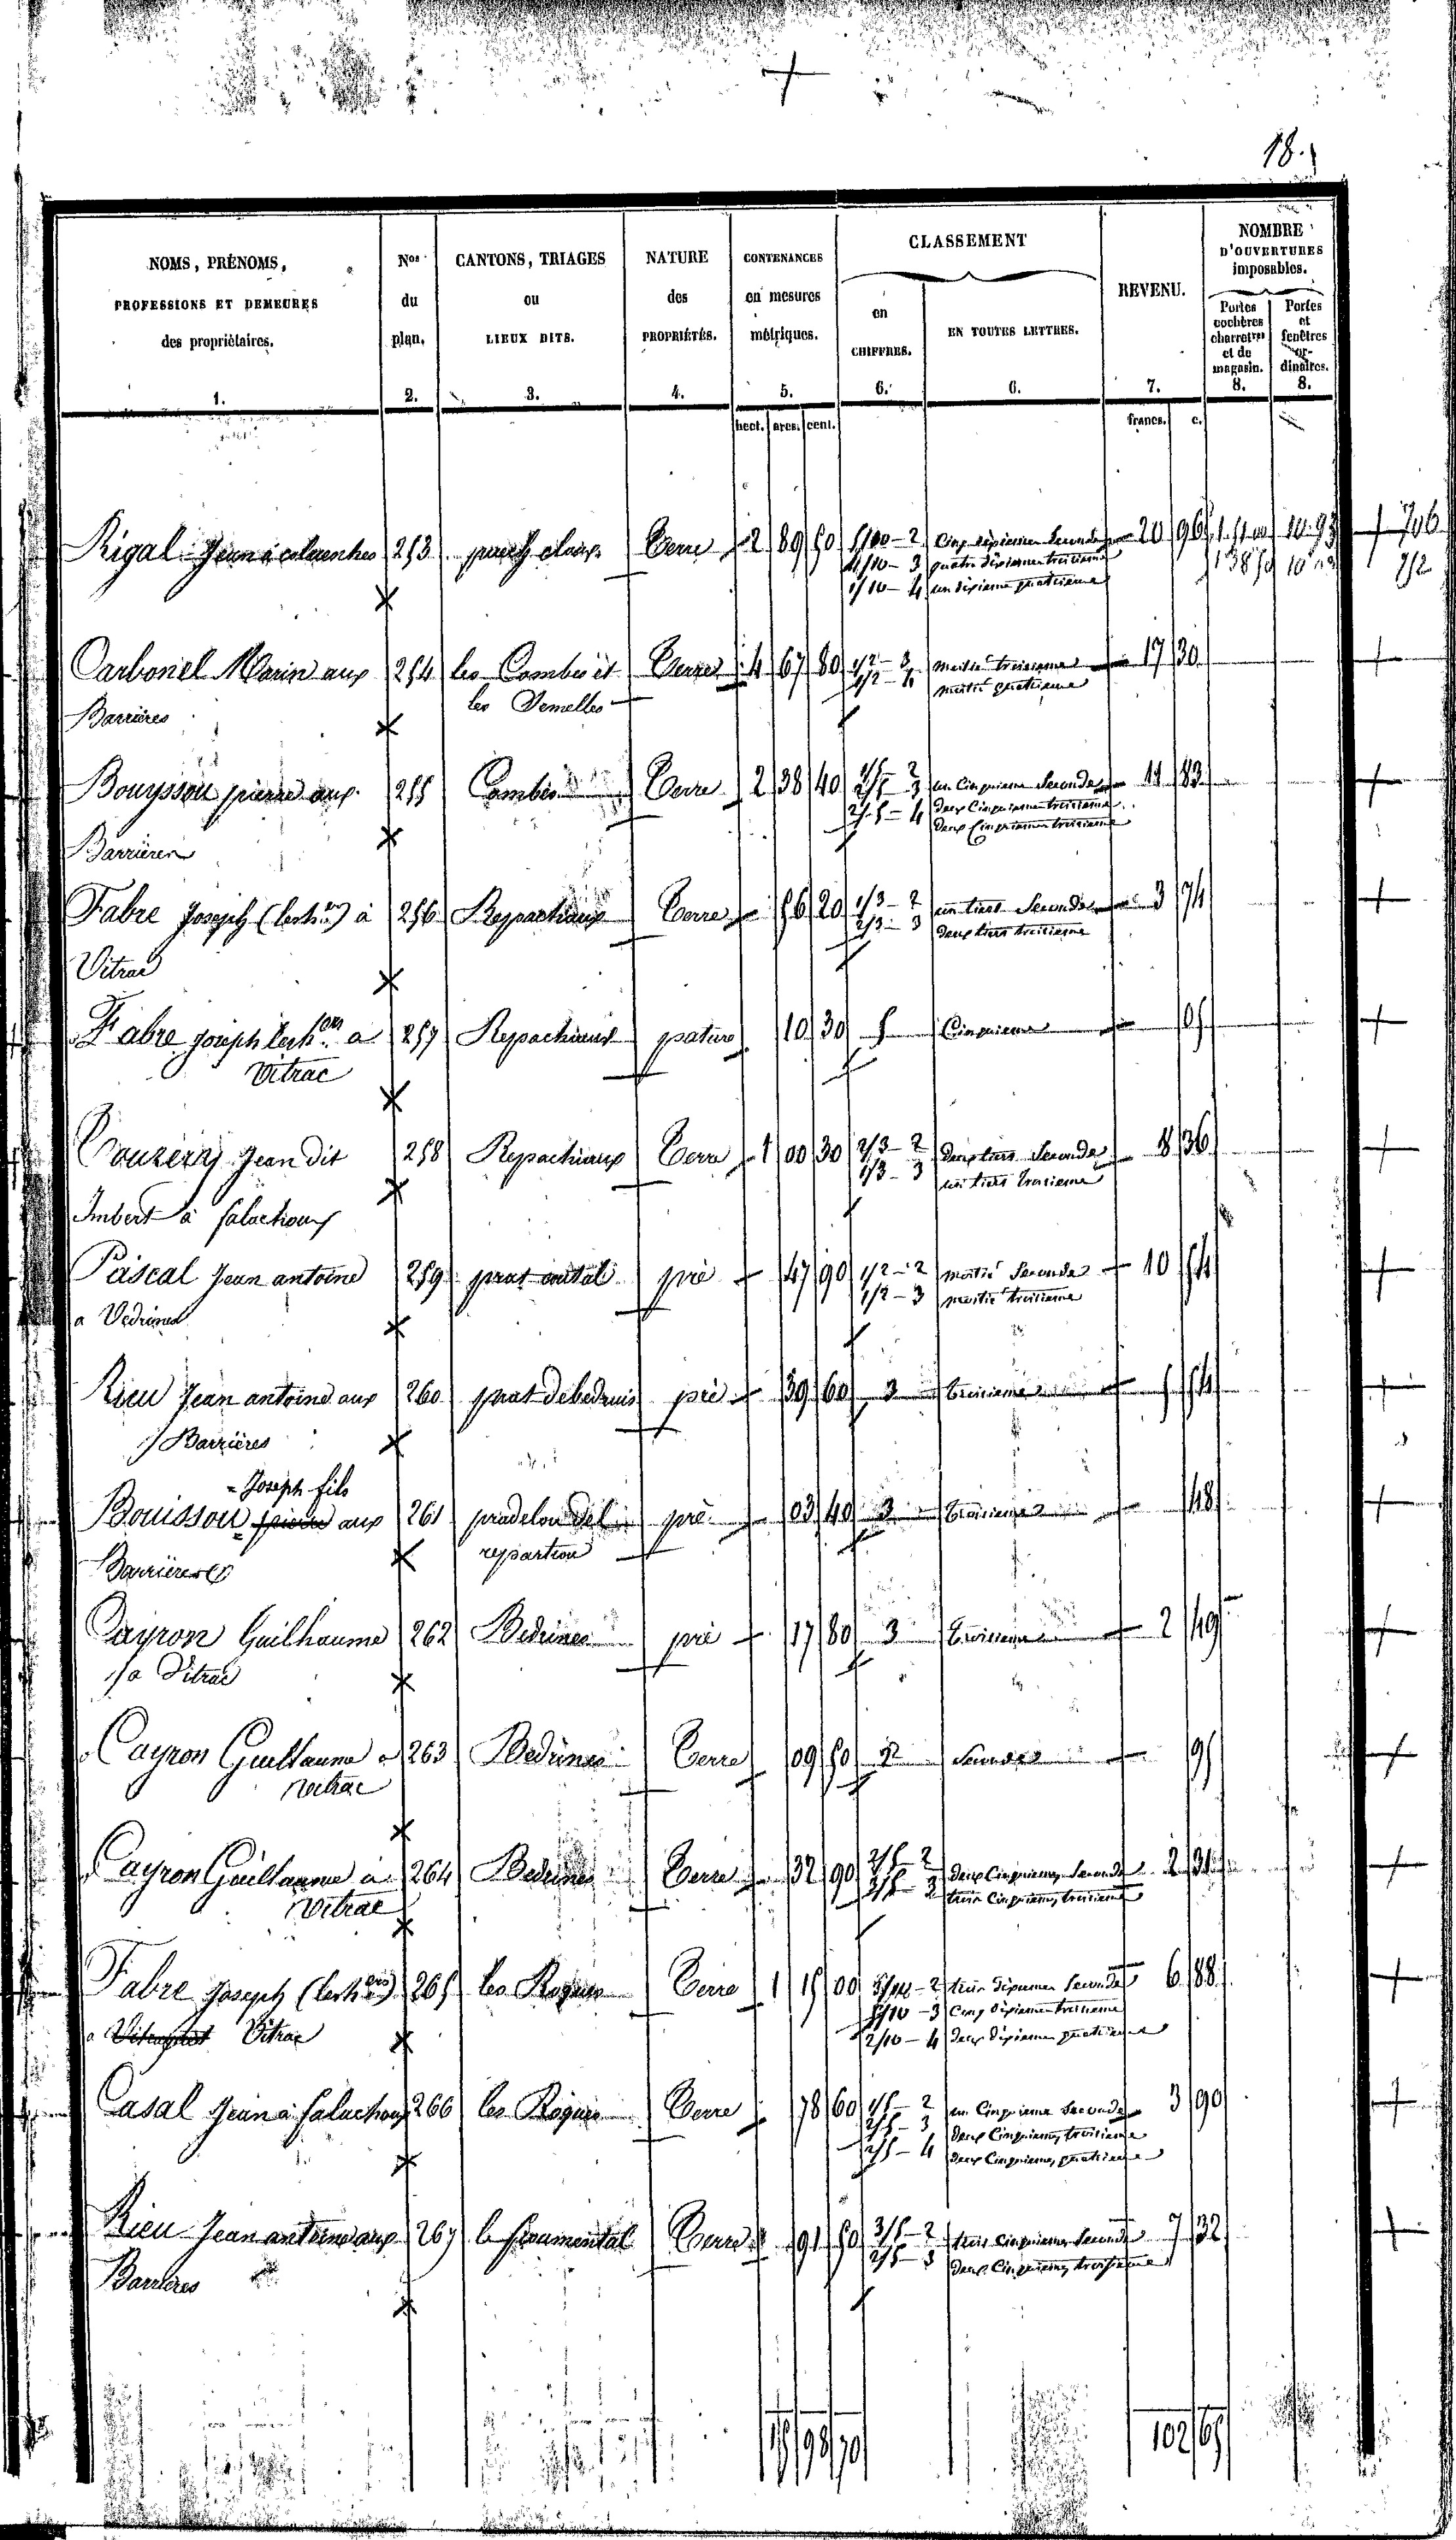 18.
NOMS, PRÉNOMS,
PROFESSIONS ET DEMEURES
des propriétaires.
1.
Nos
du
plan.
2.
CANTONS, TRIAGES
ou
LIEUX DITS.
3.
NATURE
des
PROPRIÉTÉS.
4.
CONTENANCES
en mesures
métriques.
5.
CLASSEMENT
en
CHIFFRES.
6.
EN TOUTES LETTRES.
6.
REVENU.
7.
NOMBRE
D'OUVERTURES
imposables.
Portes
cochères
charretres
et de
magasin.
8.
Portes
et
fenêtres
or-
dinaires.
8.
hect. ares. cent. francs. c.
Rigal Jean à 253 puech Terre 2 89 50 5/10 - 2 cinq dixieme seconde 20 96
4/10 - 3 quatre dixieme troisieme
1/10 - 4 un dixieme quatrieme
Carbonel Marin aux 254 les Combes et Terre 4 67 80 1/2 - 3 moitié troisieme 17 30
les Demelles 1/2 - 4 moitié quatrieme
Barrières
Bouyssou pierre aux 255 Combes Terre 2 38 40 1/5 - 2 un Cinquieme Seconde 11 83
2/5 - 3 deux Cinquieme troisieme
2/5 - 4 deux Cinquieme troisieme
Barrieres
Fabre Joseph à 256 Repachaux Terre 56 20 1/3 - 2 un tiers Seconde 3 74
2/3 - 3 deux tiers troisieme
Vitrac
Fabre joseph a 257 pature 10 30 5 Cinquieme 05
Vitrac
Jean dit 258 Repachaux Terre 1 00 30 2/3 - 2 deux tiers Seconde 8 36
1/3 - 3 un tiers troisieme
Imbert à
Pascal Jean antoine 259 prat pré 47 90 1/2 - 2 moitié Seconde 10 54
1/2 - 3 moitié troisieme
a Vedrines
Rieu Jean antoine aux 260 prat pré 39 60 3 troisieme 5 54
Barrières
Joseph fils
Bouissou pierre aux 261 pradelou del pré 03 40 3 troisieme 48
repartiou
Barrieres
Cayron Guilhaume 262 Bedrines pré 17 80 3 troisieme 2 49
a Vitrac
Cayron Guillaume a 263 Bedrines Terre 09 50 2 Seconde 95
vitrac
Cayron Guillaume a 264 Bedrines Terre 32 90 2/5 - 2 deux Cinquieme Seconde 2 31
3/5 - 3 trois Cinquieme troisieme
Vitrac
Fabre joseph 265 les Terre 1 15 00 3/10 - 2 trois dixieme Seconde 6 88
5/10 - 3 Cinq dixieme troisieme
a Vitrac 2/10 - 4 deux dixieme quatrieme
Casal Jean à 266 les Terre 78 60 1/5 - 2 un Cinquieme Seconde 3 90
2/5 - 3 deux Cinquieme troisieme
2/5 - 4 deux Cinquieme quatrieme
Rieu Jean antoine aux 267 le froumental Terre 91 50 3/5 - 2 trois cinquieme Seconde 7 32
2/5 - 3 deux Cinquieme troisieme
Barrières
15 98 70 102 65